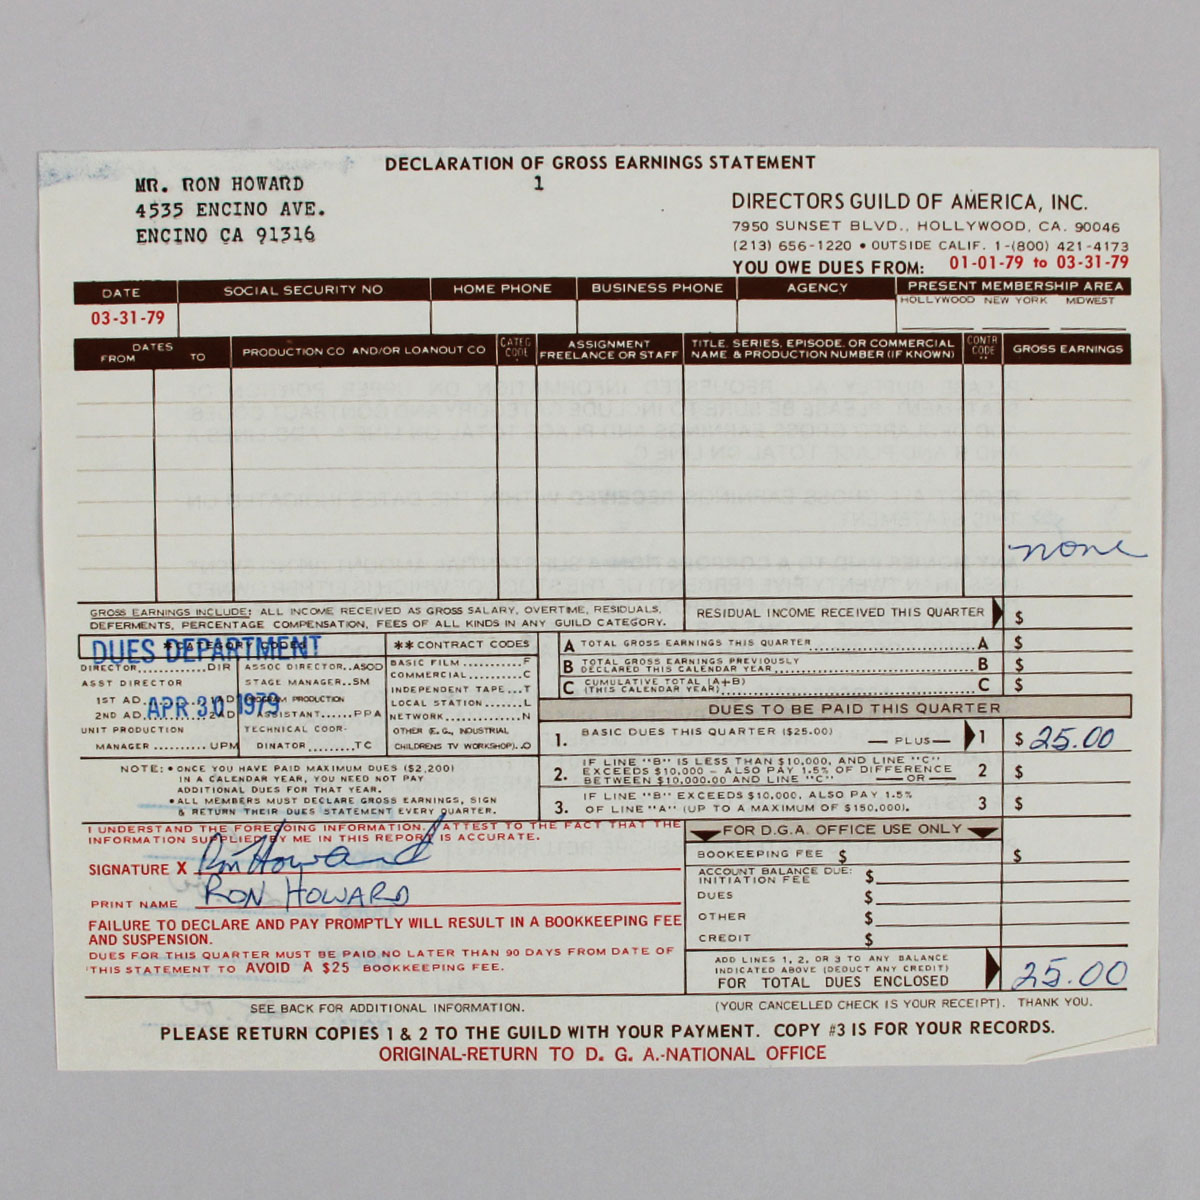 DECLARATION OF GROSS EARNINGS STATEMENT
1
MR. RON HOWARD
4535 ENCINO AVE.
ENCINO CA 91316
DIRECTORS GUILD OF AMERICA, INC.
7950 SUNSET BLVD., HOLLYWOOD, CA. 90046
(213) 656-1220 • OUTSIDE CALIF. 1-(800) 421-4173
YOU OWE DUES FROM: 01-01-79 to 03-31-79
DATE SOCIAL SECURITY NO HOME PHONE BUSINESS PHONE AGENCY PRESENT MEMBERSHIP AREA
HOLLYWOOD NEW YORK MIDWEST
03-31-79
DATES
FROM TO
PRODUCTION CO AND/OR LOANOUT CO
CATEG CODE
*
ASSIGNMENT
FREELANCE OR STAFF
TITLE, SERIES, EPISODE, OR COMMERCIAL
NAME & PRODUCTION NUMBER (IF KNOWN)
CONTR CODE
**
GROSS EARNINGS
none
GROSS EARNINGS INCLUDE: ALL INCOME RECEIVED AS GROSS SALARY, OVERTIME, RESIDUALS,
DEFERMENTS, PERCENTAGE COMPENSATION, FEES OF ALL KINDS IN ANY GUILD CATEGORY.
RESIDUAL INCOME RECEIVED THIS QUARTER $
DUES DEPARTMENT
APR 30 1979
*CATEGORY CODES
DIRECTOR..........DIR
ASST DIRECTOR
1ST AD..........AD
2ND AD..........2AD
UNIT PRODUCTION
MANAGER..........UPM
ASSOC DIRECTOR..ASOD
STAGE MANAGER..SM
PROGRAM PRODUCTION
ASSISTANT......PPA
TECHNICAL COOR-
DINATOR........TC
**CONTRACT CODES
BASIC FILM..........F
COMMERCIAL..........C
INDEPENDENT TAPE...T
LOCAL STATION.......L
NETWORK..........N
OTHER (E.G., INDUSTRIAL
CHILDRENS TV WORKSHOP)..O
A TOTAL GROSS EARNINGS THIS QUARTER A $
B TOTAL GROSS EARNINGS PREVIOUSLY
DECLARED THIS CALENDAR YEAR B $
C CUMULATIVE TOTAL (A+B)
(THIS CALENDAR YEAR) C $
DUES TO BE PAID THIS QUARTER
1. BASIC DUES THIS QUARTER ($25.00) — PLUS — 1 $ 25.00
2. IF LINE "B" IS LESS THAN $10,000, AND LINE "C"
EXCEEDS $10,000 – ALSO PAY 1.5% OF DIFFERENCE
BETWEEN $10,000.00 AND LINE "C" — OR — 2 $
3. IF LINE "B" EXCEEDS $10,000, ALSO PAY 1.5%
OF LINE "A" (UP TO A MAXIMUM OF $150,000). 3 $
NOTE: • ONCE YOU HAVE PAID MAXIMUM DUES ($2,200)
IN A CALENDAR YEAR, YOU NEED NOT PAY
ADDITIONAL DUES FOR THAT YEAR.
• ALL MEMBERS MUST DECLARE GROSS EARNINGS, SIGN
& RETURN THEIR DUES STATEMENT EVERY QUARTER.
I UNDERSTAND THE FOREGOING INFORMATION. I ATTEST TO THE FACT THAT THE
INFORMATION SUPPLIED BY ME IN THIS REPORT IS ACCURATE.
SIGNATURE X Ron Howard
PRINT NAME RON HOWARD
FAILURE TO DECLARE AND PAY PROMPTLY WILL RESULT IN A BOOKKEEPING FEE
AND SUSPENSION.
DUES FOR THIS QUARTER MUST BE PAID NO LATER THAN 90 DAYS FROM DATE OF
THIS STATEMENT TO AVOID A $25 BOOKKEEPING FEE.
FOR D.G.A. OFFICE USE ONLY
BOOKKEEPING FEE $ $
ACCOUNT BALANCE DUE:
INITIATION FEE $
DUES $
OTHER $
CREDIT $
ADD LINES 1, 2, OR 3 TO ANY BALANCE
INDICATED ABOVE (DEDUCT ANY CREDIT)
FOR TOTAL DUES ENCLOSED 25.00
SEE BACK FOR ADDITIONAL INFORMATION. (YOUR CANCELLED CHECK IS YOUR RECEIPT). THANK YOU.
PLEASE RETURN COPIES 1 & 2 TO THE GUILD WITH YOUR PAYMENT. COPY #3 IS FOR YOUR RECORDS.
ORIGINAL-RETURN TO D. G. A.-NATIONAL OFFICE